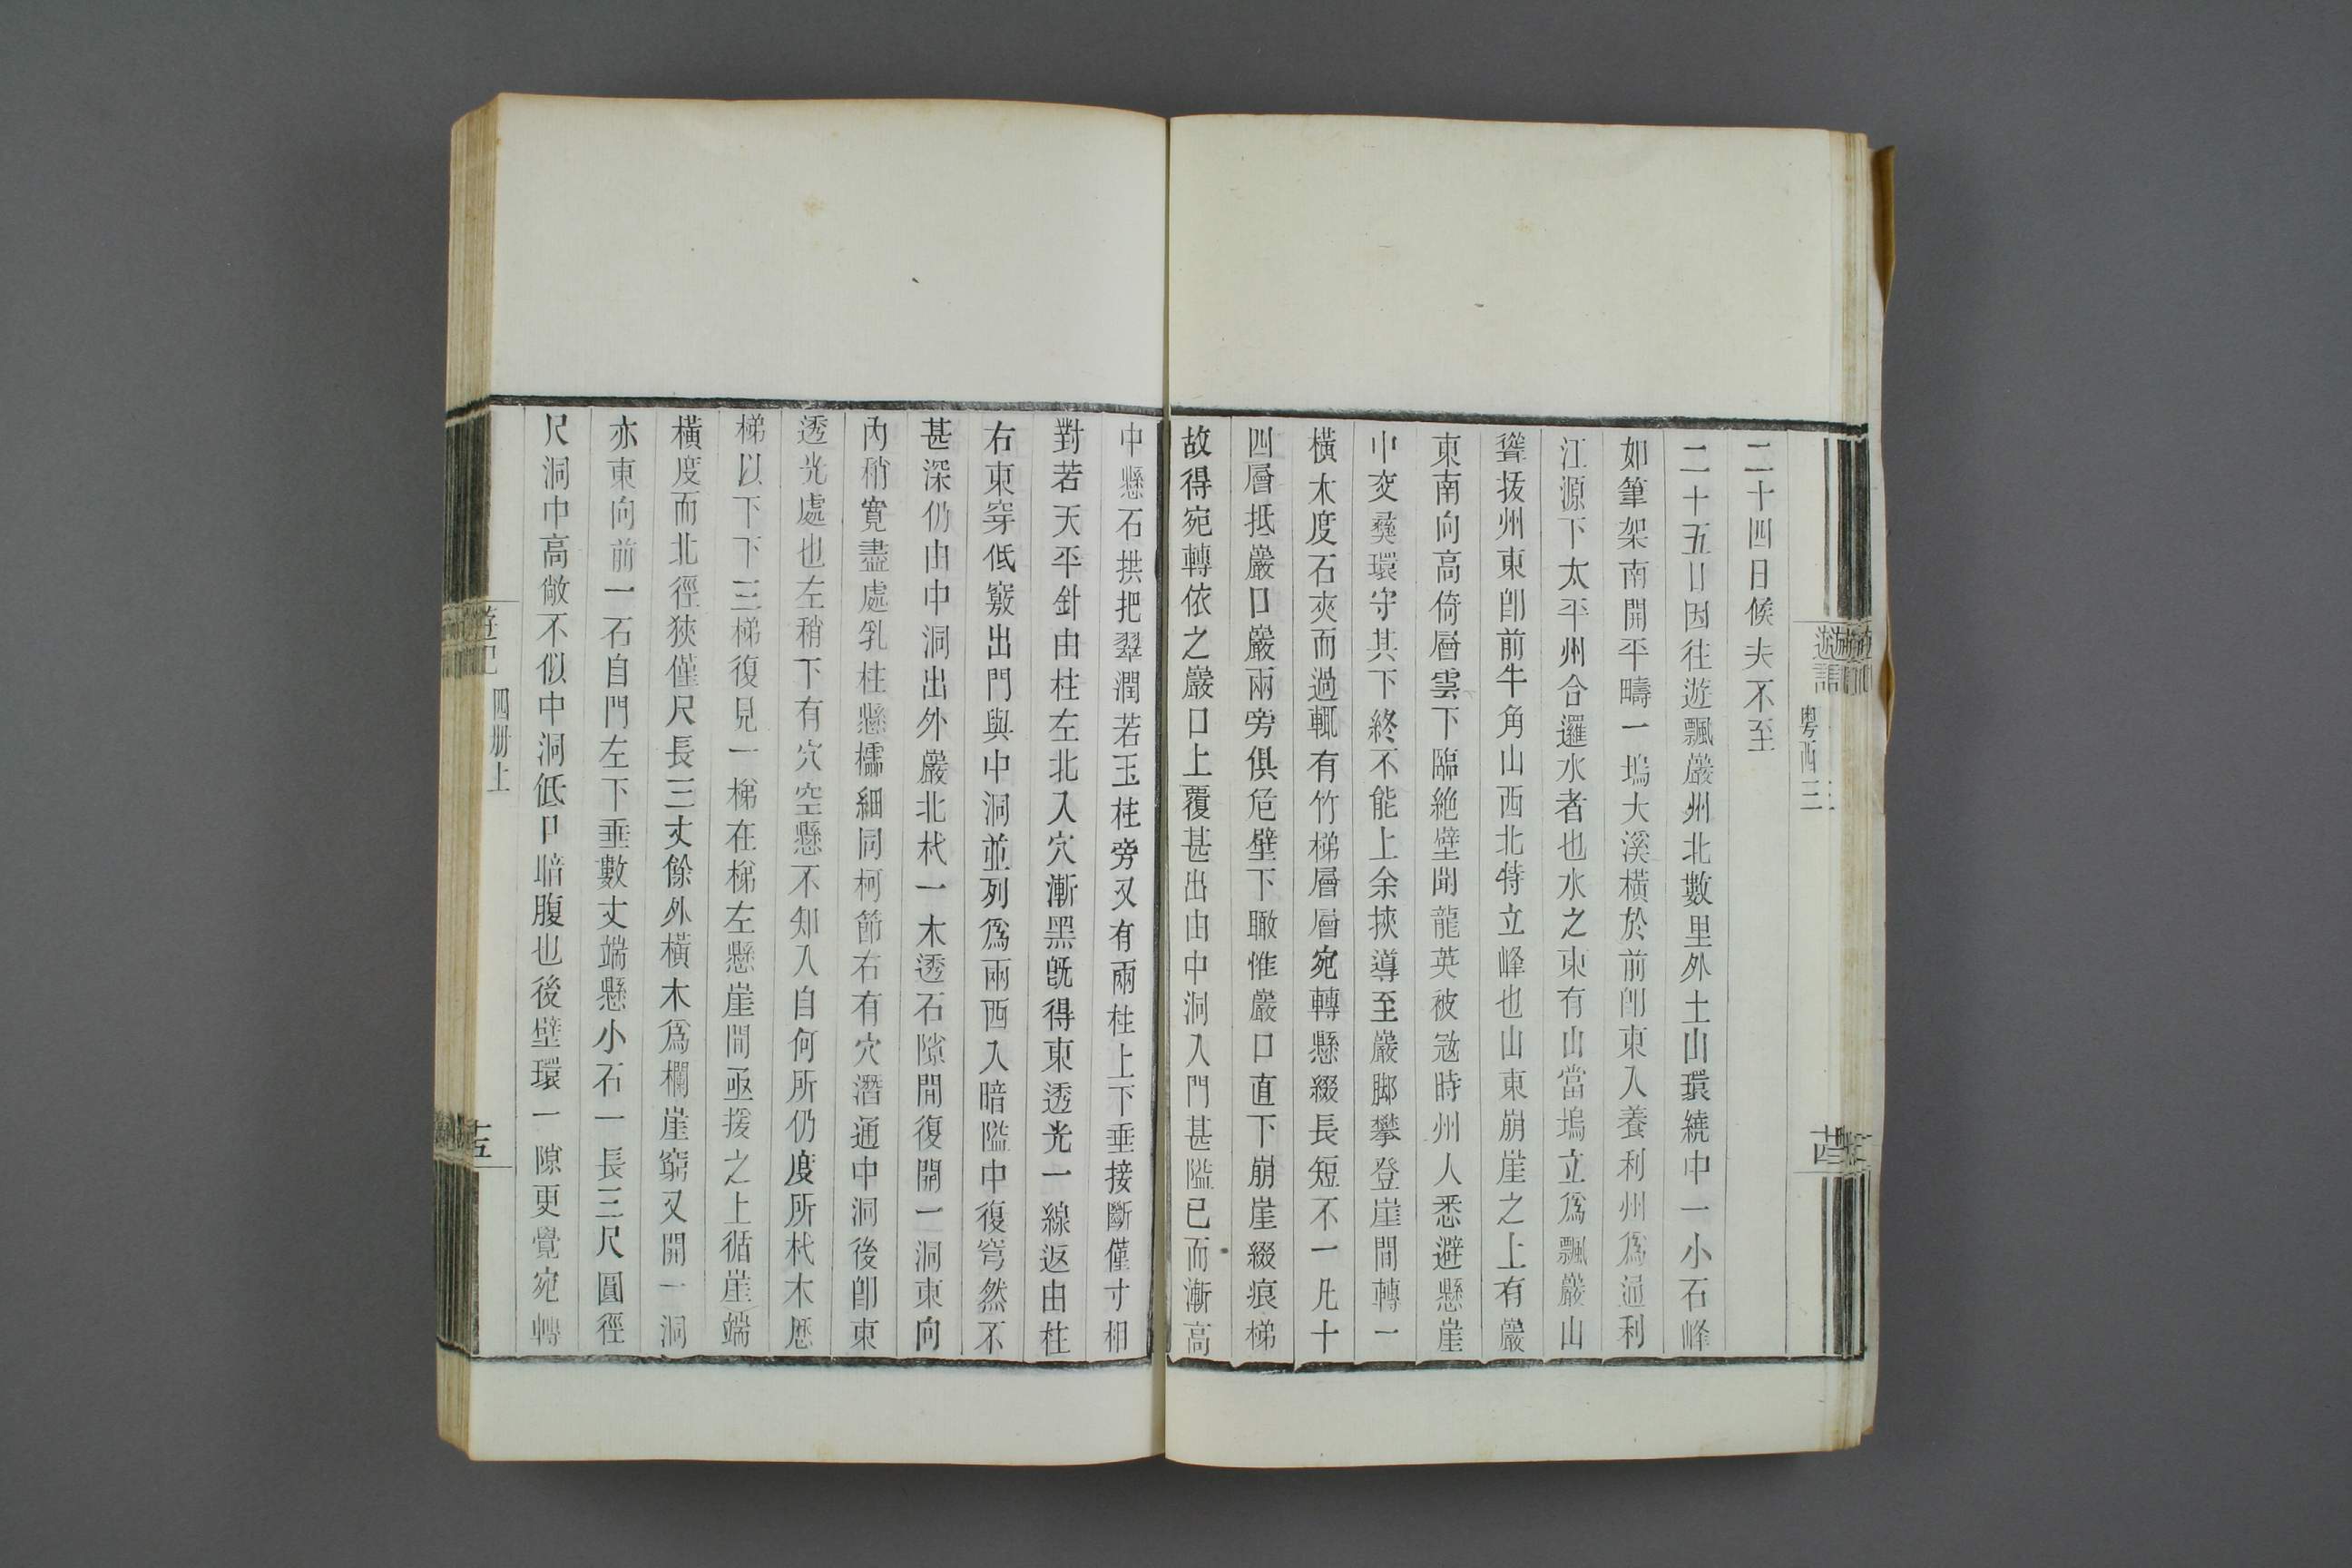 二十四日候夫不至
二十五日因往遊飄巖州北數里外土山環繞中一小石峰
如筆架南開平疇一塢大溪橫於前卽東入養利州爲通利
江源下太平州合邏水者也水之東有山當塢立爲飄巖山
聳拔州東卽前牛角山西北特立峰也山東崩崖之上有巖
東南向高倚層雲下臨絶壁聞龍英被寇時州人悉避懸崖
中交彝環守其下終不能上余挾導至巖脚攀登崖間轉一
橫木度石夾而過輒有竹梯層層宛轉懸綴長短不一凡十
四層抵巖口巖兩旁俱危壁下瞰惟巖口直下崩崖綴痕梯
故得宛轉依之巖口上覆甚出由中洞入門甚隘已而漸高
中懸石拱把翠潤若玉柱旁又有兩柱上下垂接斷僅寸相
對若天平針由柱左北入穴漸黑旣得東透光一線返由柱
右東穿低竅出門與中洞並列爲兩西入暗隘中復穹然不
甚深仍由中洞出外巖北杙一木透石隙間復開一洞東向
內稍寬盡處乳柱懸檽細同柯節右有穴潛通中洞後卽東
透光處也左稍下有穴空懸不知入自何所仍度所杙木歷
梯以下下三梯復見一梯在梯左懸崖間亟援之上循崖端
橫度而北徑狹僅尺長三丈餘外橫木爲欄崖窮又開一洞
亦東向前一石自門左下垂數丈端懸小石一長三尺圓徑
尺洞中高敞不似中洞低口暗腹也後壁環一隙更覺宛轉
粵西三
四册上